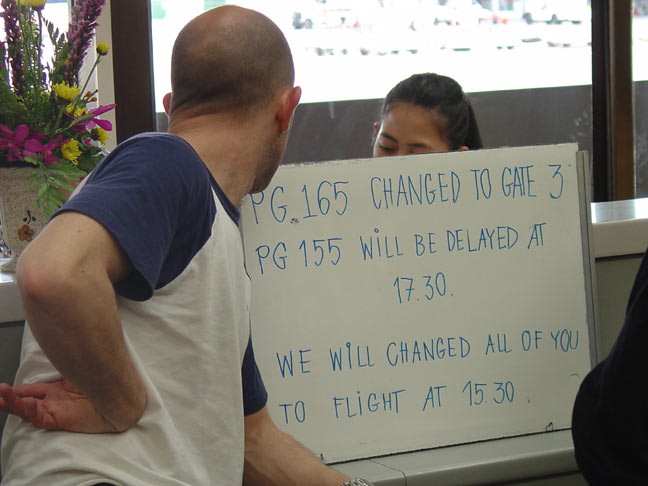 PG.165 CHANGED TO GATE 3
PG 155 WILL BE DELAYED AT
17.30.
WE WILL CHANGED ALL OF YOU
TO FLIGHT AT 15.30.